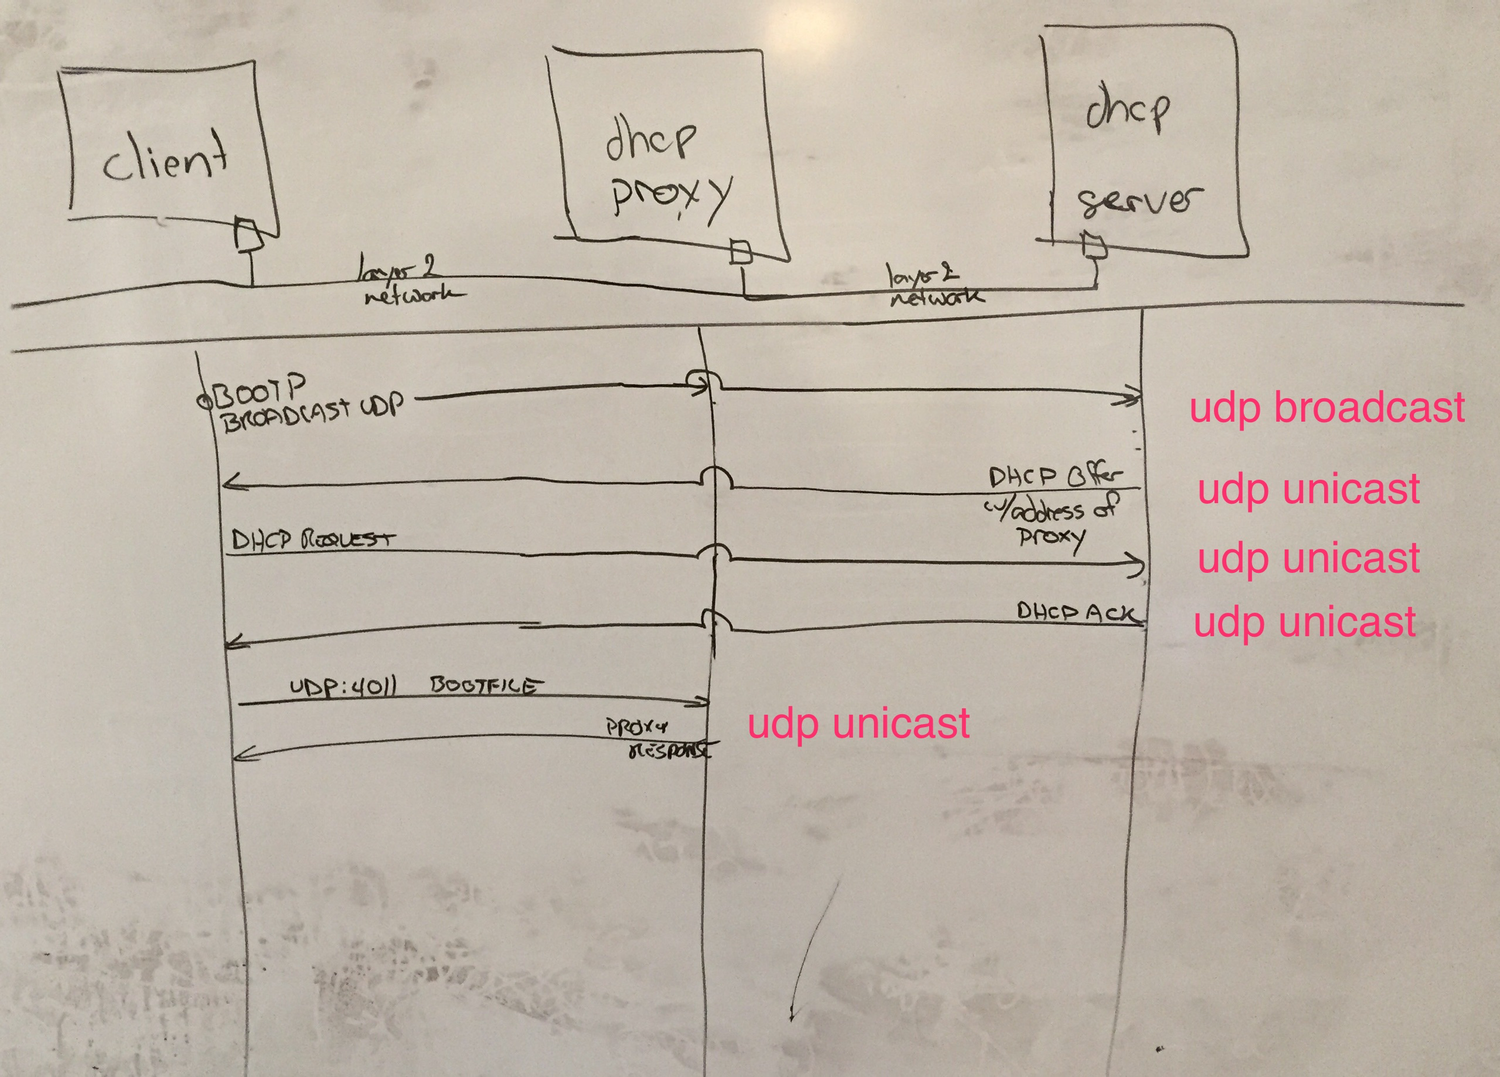 client
dhcp
proxy
dhcp
server
layer 2
network
layer 2
network
BOOTP
BROADCAST UDP
udp broadcast
DHCP Offer
w/address of
Proxy
udp unicast
DHCP REQUEST
udp unicast
DHCP ACK
udp unicast
UDP:4011 BOOTFILE
PROXY
RESPONSE
udp unicast